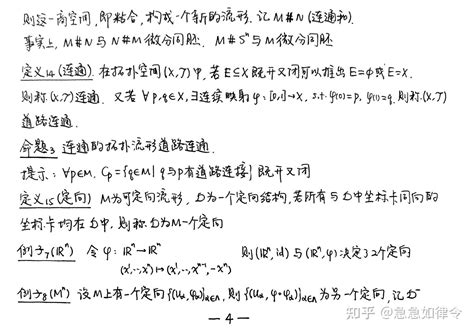 则这一商空间, 即粘合, 构成一个新的流形. 记 M#N (连通和).
事实上, M#N 与 N#M 微分同胚. M#Sⁿ 与 M 微分同胚
定义14(连通). 在拓扑空间(X,T)中, 若 E⊆X 既开又闭可以推出 E=φ或 E=X.
则称(X,T)连通. 又若 ∀p,q∈X, ∃连续映射 φ:[0,1]→X, s.t. φ(0)=p, φ(1)=q. 则称(X,T)
道路连通.
命题3 连通的拓扑流形道路连通.
提示: ∀p∈M. Cp={q∈M| q与p有道路连接} 既开又闭
定义15(定向) M为可定向流形, D为一个定向结构, 若所有与D中坐标卡同向的
坐标卡均在D中, 则称D为M一个定向
例子7(ℝⁿ) 令 φ: ℝⁿ→ℝⁿ 则(ℝⁿ, id) 与 (ℝⁿ, φ) 决定了2个定向
(x¹,…,xⁿ)↦(x¹,…,xⁿ⁻¹,-xⁿ)
例子8(Mⁿ) 设M上有一个定向{(Uα,φα)}α∈Λ, 则{(Uα, φ∘φα)}α∈Λ为另一个定向, 记D⁻
— 4 —
知乎 @急急如律令